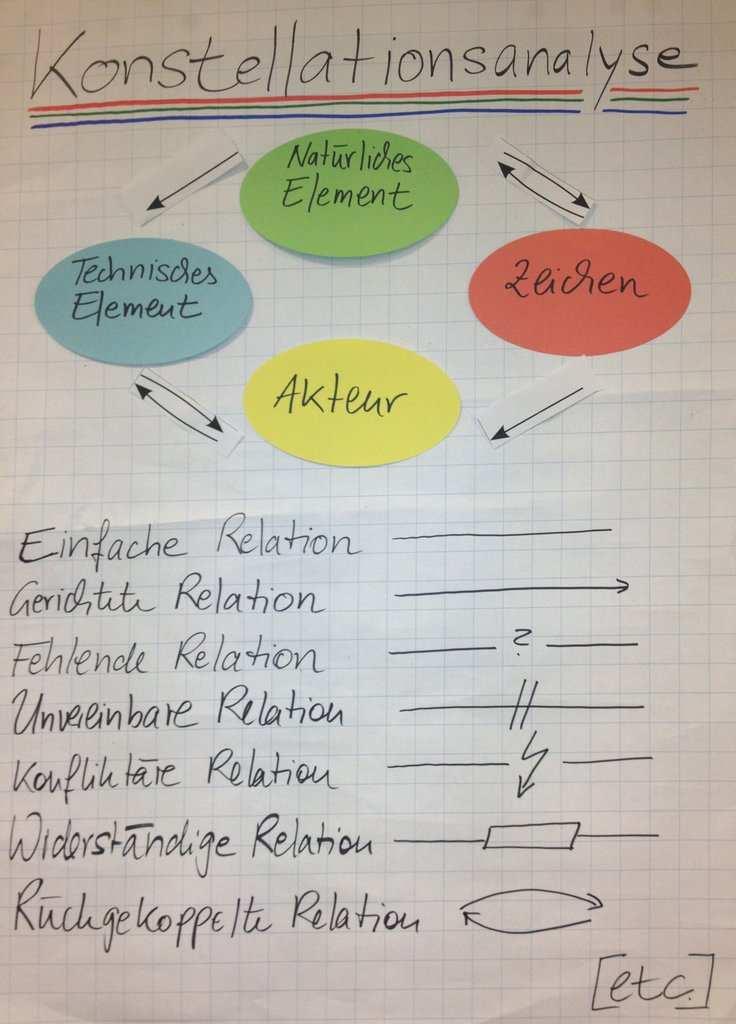 Konstellationsanalyse
Natürliches
Element
Technisches
Element
Zeichen
Akteur
Einfache Relation
Gerichtete Relation
Fehlende Relation
?
Unvereinbare Relation
Konfliktäre Relation
Widerständige Relation
Rückgekoppelte Relation
[etc.]